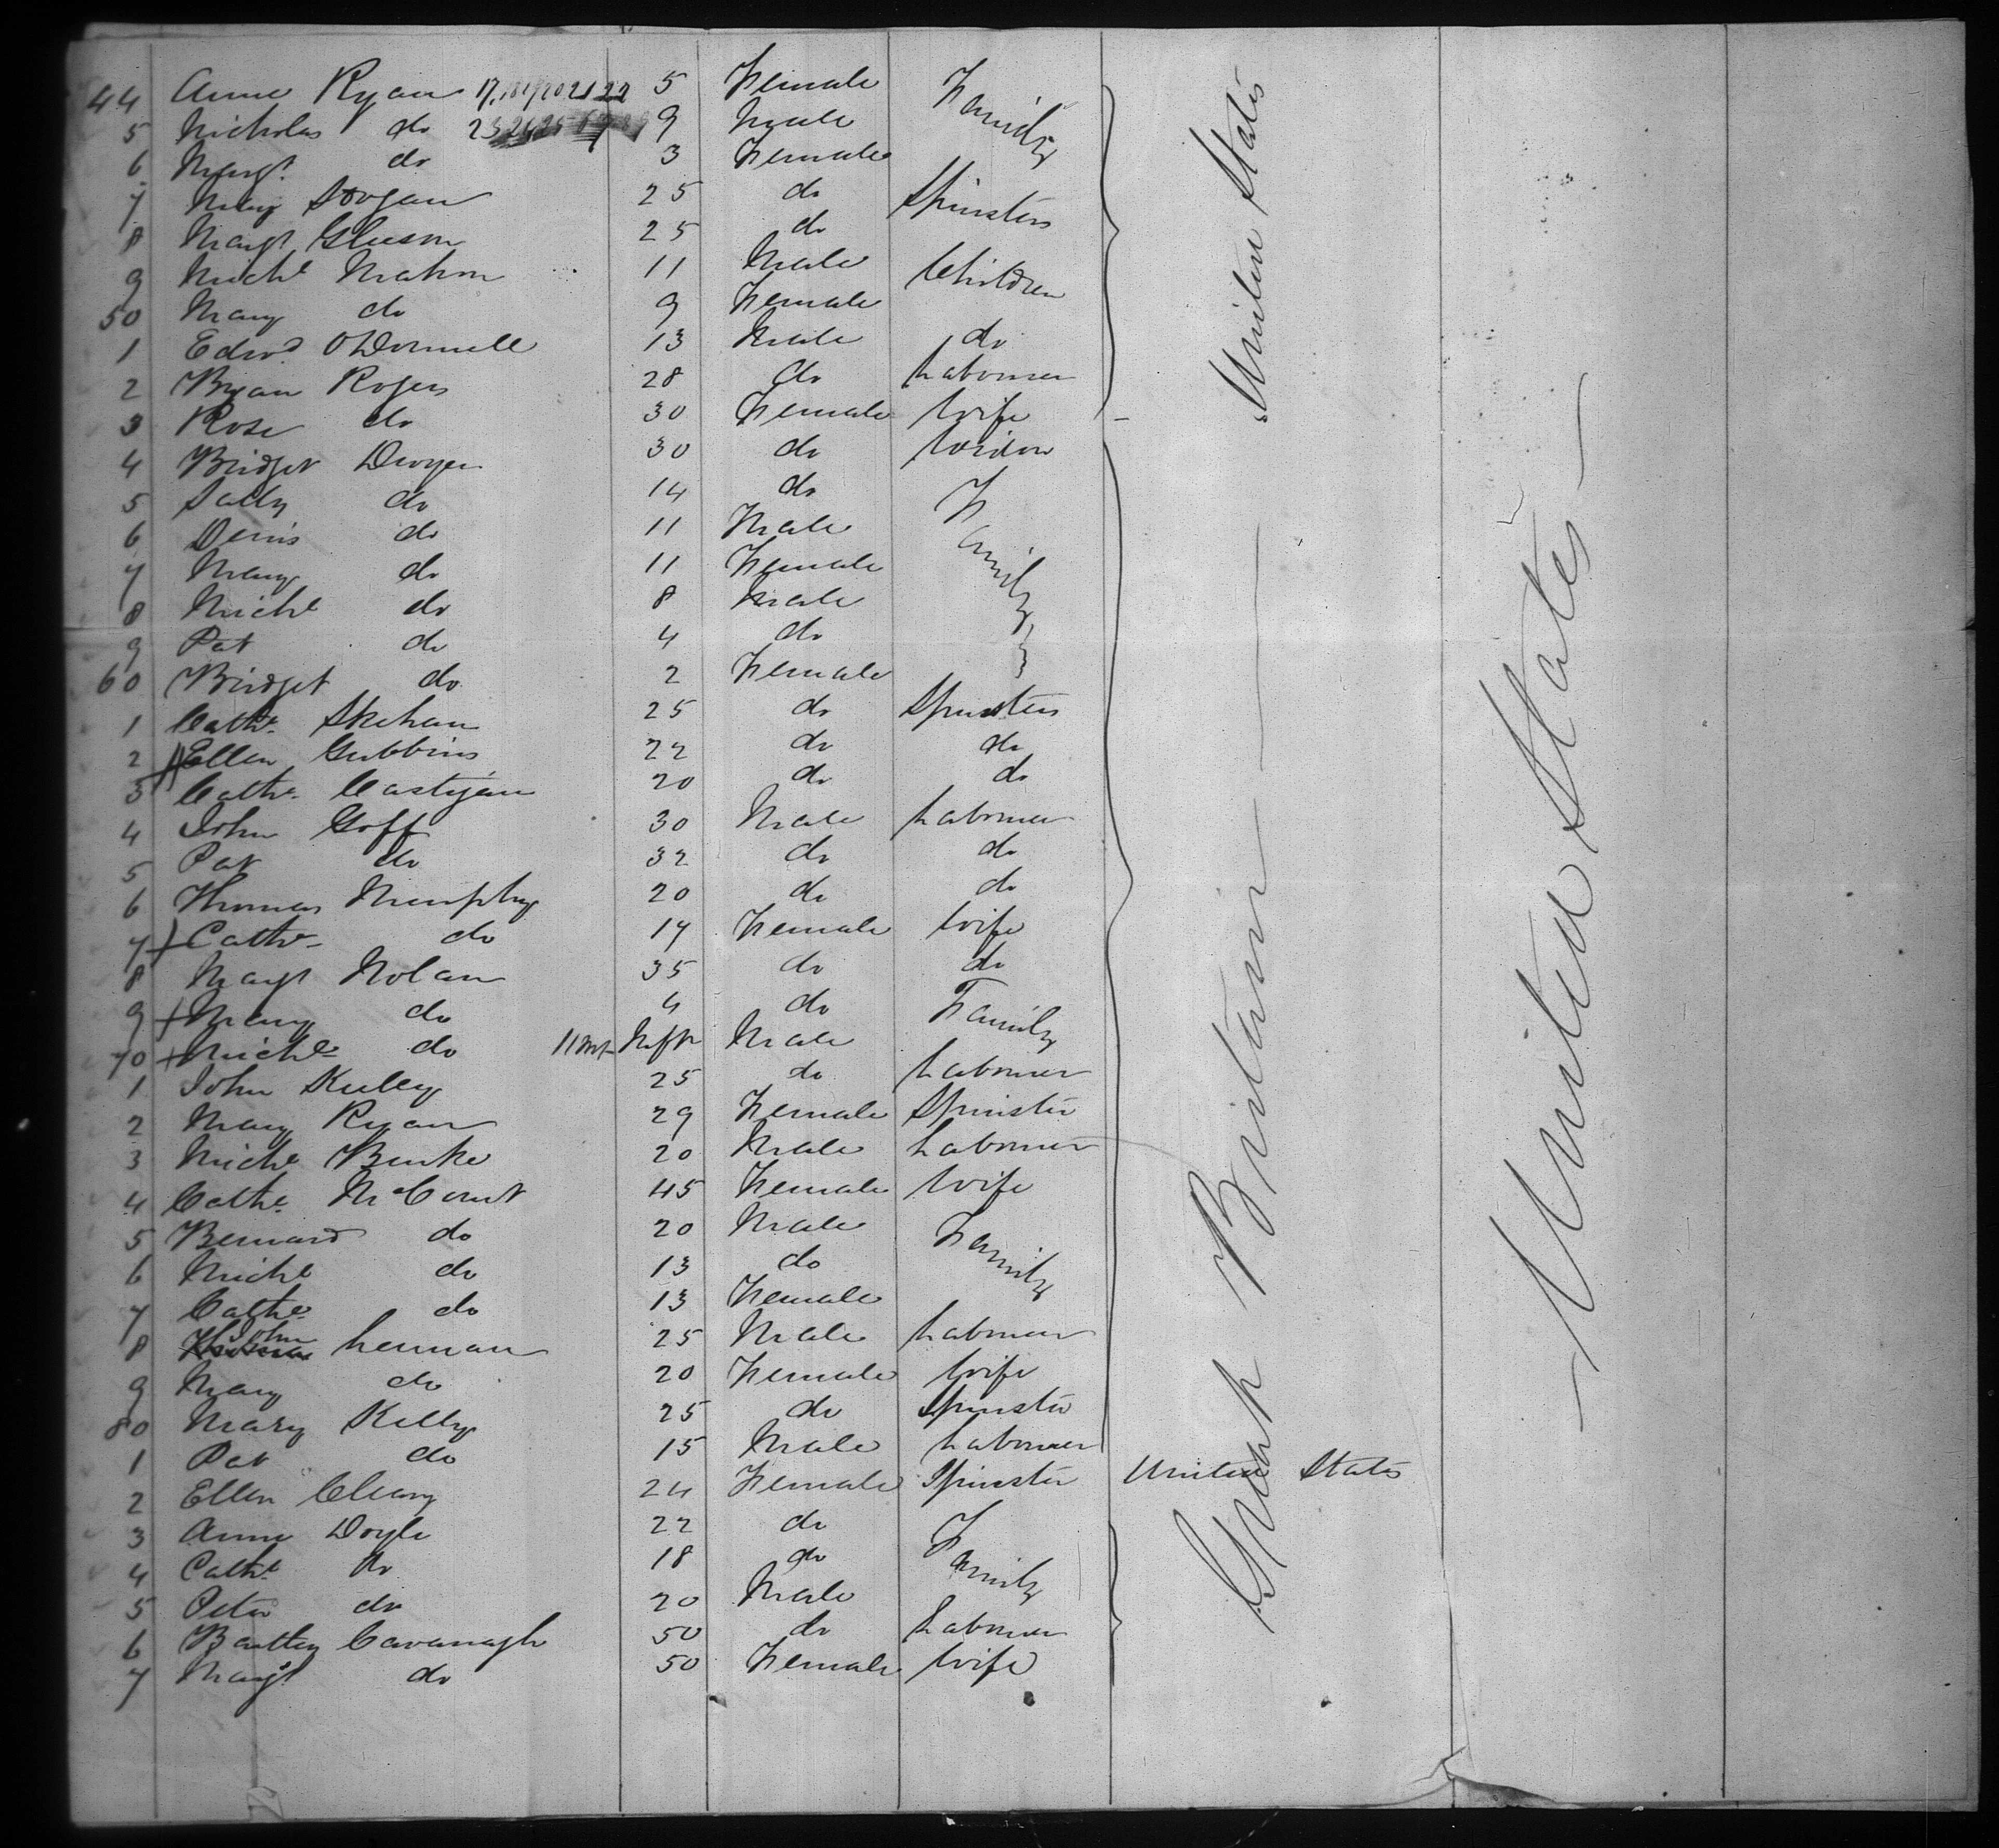 44 Anne Ryan 17,18 19 20 21 22 5 Female Family
5 Nicholas do 23 24 25 9 Male
6 Margt. do 3 Female
7 Mary Dorgan 25 do Spinsters
8 Margt Gleeson 25 do
9 Michl Mahon 11 Male Children
50 Mary do 9 Female
1 Edwd ODonnell 13 Male do
2 Bryan Rogers 28 do Labourer
3 Rose do 30 Female Wife
United States
4 Bridget Dwyer 30 do Widow
5 Sally do 14 do Family
6 Denis do 11 Male
7 Mary do 11 Female
8 Michl do 8 Male
9 Pat do 4 do
60 Bridget do 2 Female
1 Cathe Skehan 25 do Spinsters
2 Ellen Gubbins 22 do do
3 Cathe Castigan 20 do do
4 John Goff 30 Male Labourer
5 Pat do 32 do do
6 Thomas Murphy 20 do do
7 Cathe do 17 Female Wife
8 Margt Nolan 35 do do
9 Mary do 4 do Family
70 Michl do 11 mt Inft Male
1 John Kelly 25 do Labourer
2 Mary Ryan 29 Female Spinster
3 Michl Burke 20 Male Labourer
4 Cathe McCourt 45 Female Wife
5 Bernard do 20 Male Family
6 Michl do 13 do
7 Cathe do 13 Female
8 John Lennan 25 Male Labourer
9 Mary do 20 Female Wife
80 Mary Kelly 25 do Spinster
1 Pat do 15 Male Labourer
2 Ellen Cleary 24 Female Spinster United States
3 Anne Doyle 22 do Family
4 Cathe do 18 do
5 Peter do 20 Male
6 Bartley Cavanagh 50 do Labourer
7 Margt do 50 Female Wife
Great Britain
United States